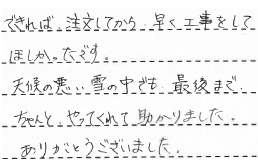 できれば、注文してから、早く工事をして
ほしかったです。
天候の悪い雪の中でも、最後まで、
ちゃんと、やってくれて助かりました。
ありがとうございました。